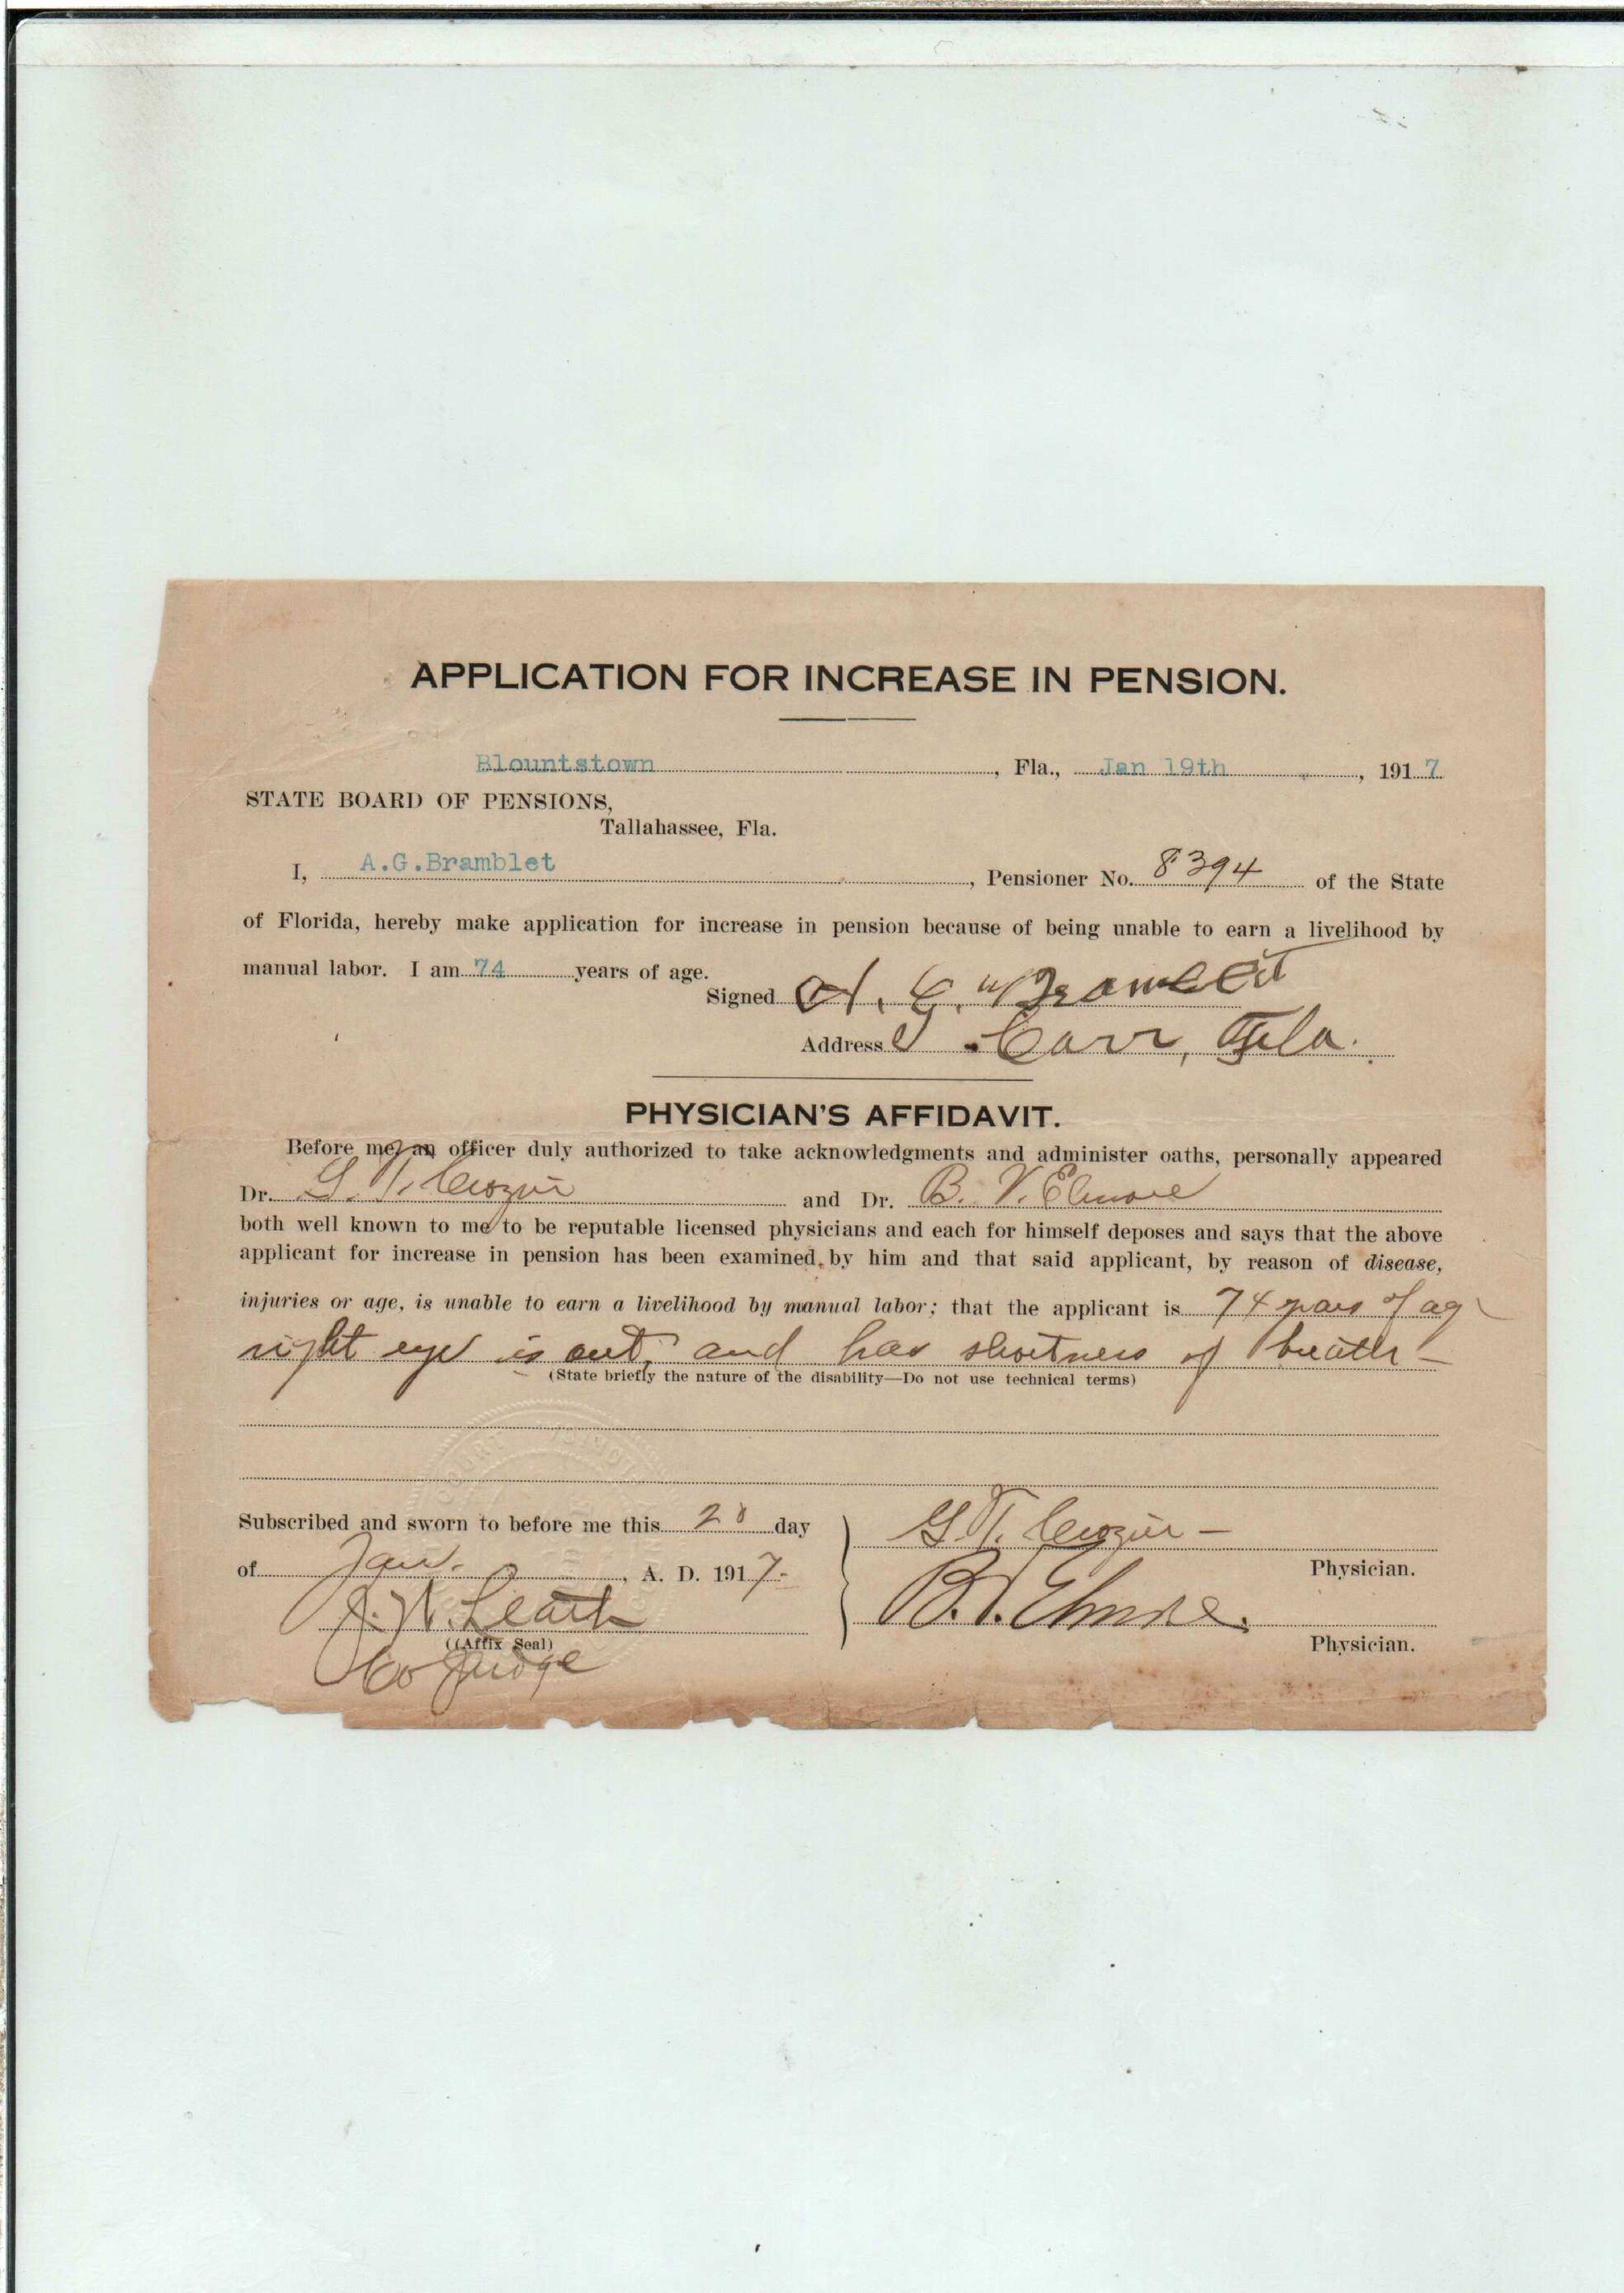 APPLICATION FOR INCREASE IN PENSION.
Blountstown, Fla., Jan 19th, 1917
STATE BOARD OF PENSIONS,
Tallahassee, Fla.
I, A.G.Bramblet, Pensioner No. 8394 of the State
of Florida, hereby make application for increase in pension because of being unable to earn a livelihood by
manual labor. I am 74 years of age.
Signed A. G. Bramblett
Address Carr, Fla.
PHYSICIAN'S AFFIDAVIT.
Before me, an officer duly authorized to take acknowledgments and administer oaths, personally appeared
Dr. G. T. Crozier and Dr. B. V. Elmore
both well known to me to be reputable licensed physicians and each for himself deposes and says that the above
applicant for increase in pension has been examined by him and that said applicant, by reason of disease,
injuries or age, is unable to earn a livelihood by manual labor; that the applicant is 74 years of ag
right eye is out, and has shortness of breath-
(State briefly the nature of the disability—Do not use technical terms)
Subscribed and sworn to before me this 20 day
of Jan., A. D. 1917.
G. T. Crozier -
Physician.
J. W. Leath
B. V. Elmore.
Physician.
(Affix Seal)
Co Judge